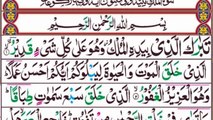 بِسْمِ اللّٰهِ الرَّحْمٰنِ الرَّحِیْمِ
تَبٰرَكَ الَّذِیْ بِیَدِهِ الْمُلْكُ وَهُوَ عَلٰی كُلِّ شَیْءٍ قَدِیْرُ
الَّذِیْ خَلَقَ الْمَوْتَ وَالْحَیٰوةَ لِیَبْلُوَكُمْ اَیُّكُمْ اَحْسَنُ عَمَلًا
وَهُوَ الْعَزِیْزُ الْغَفُوْرُ الَّذِیْ خَلَقَ سَبْعَ سَمٰوٰتٍ طِبَاقًا